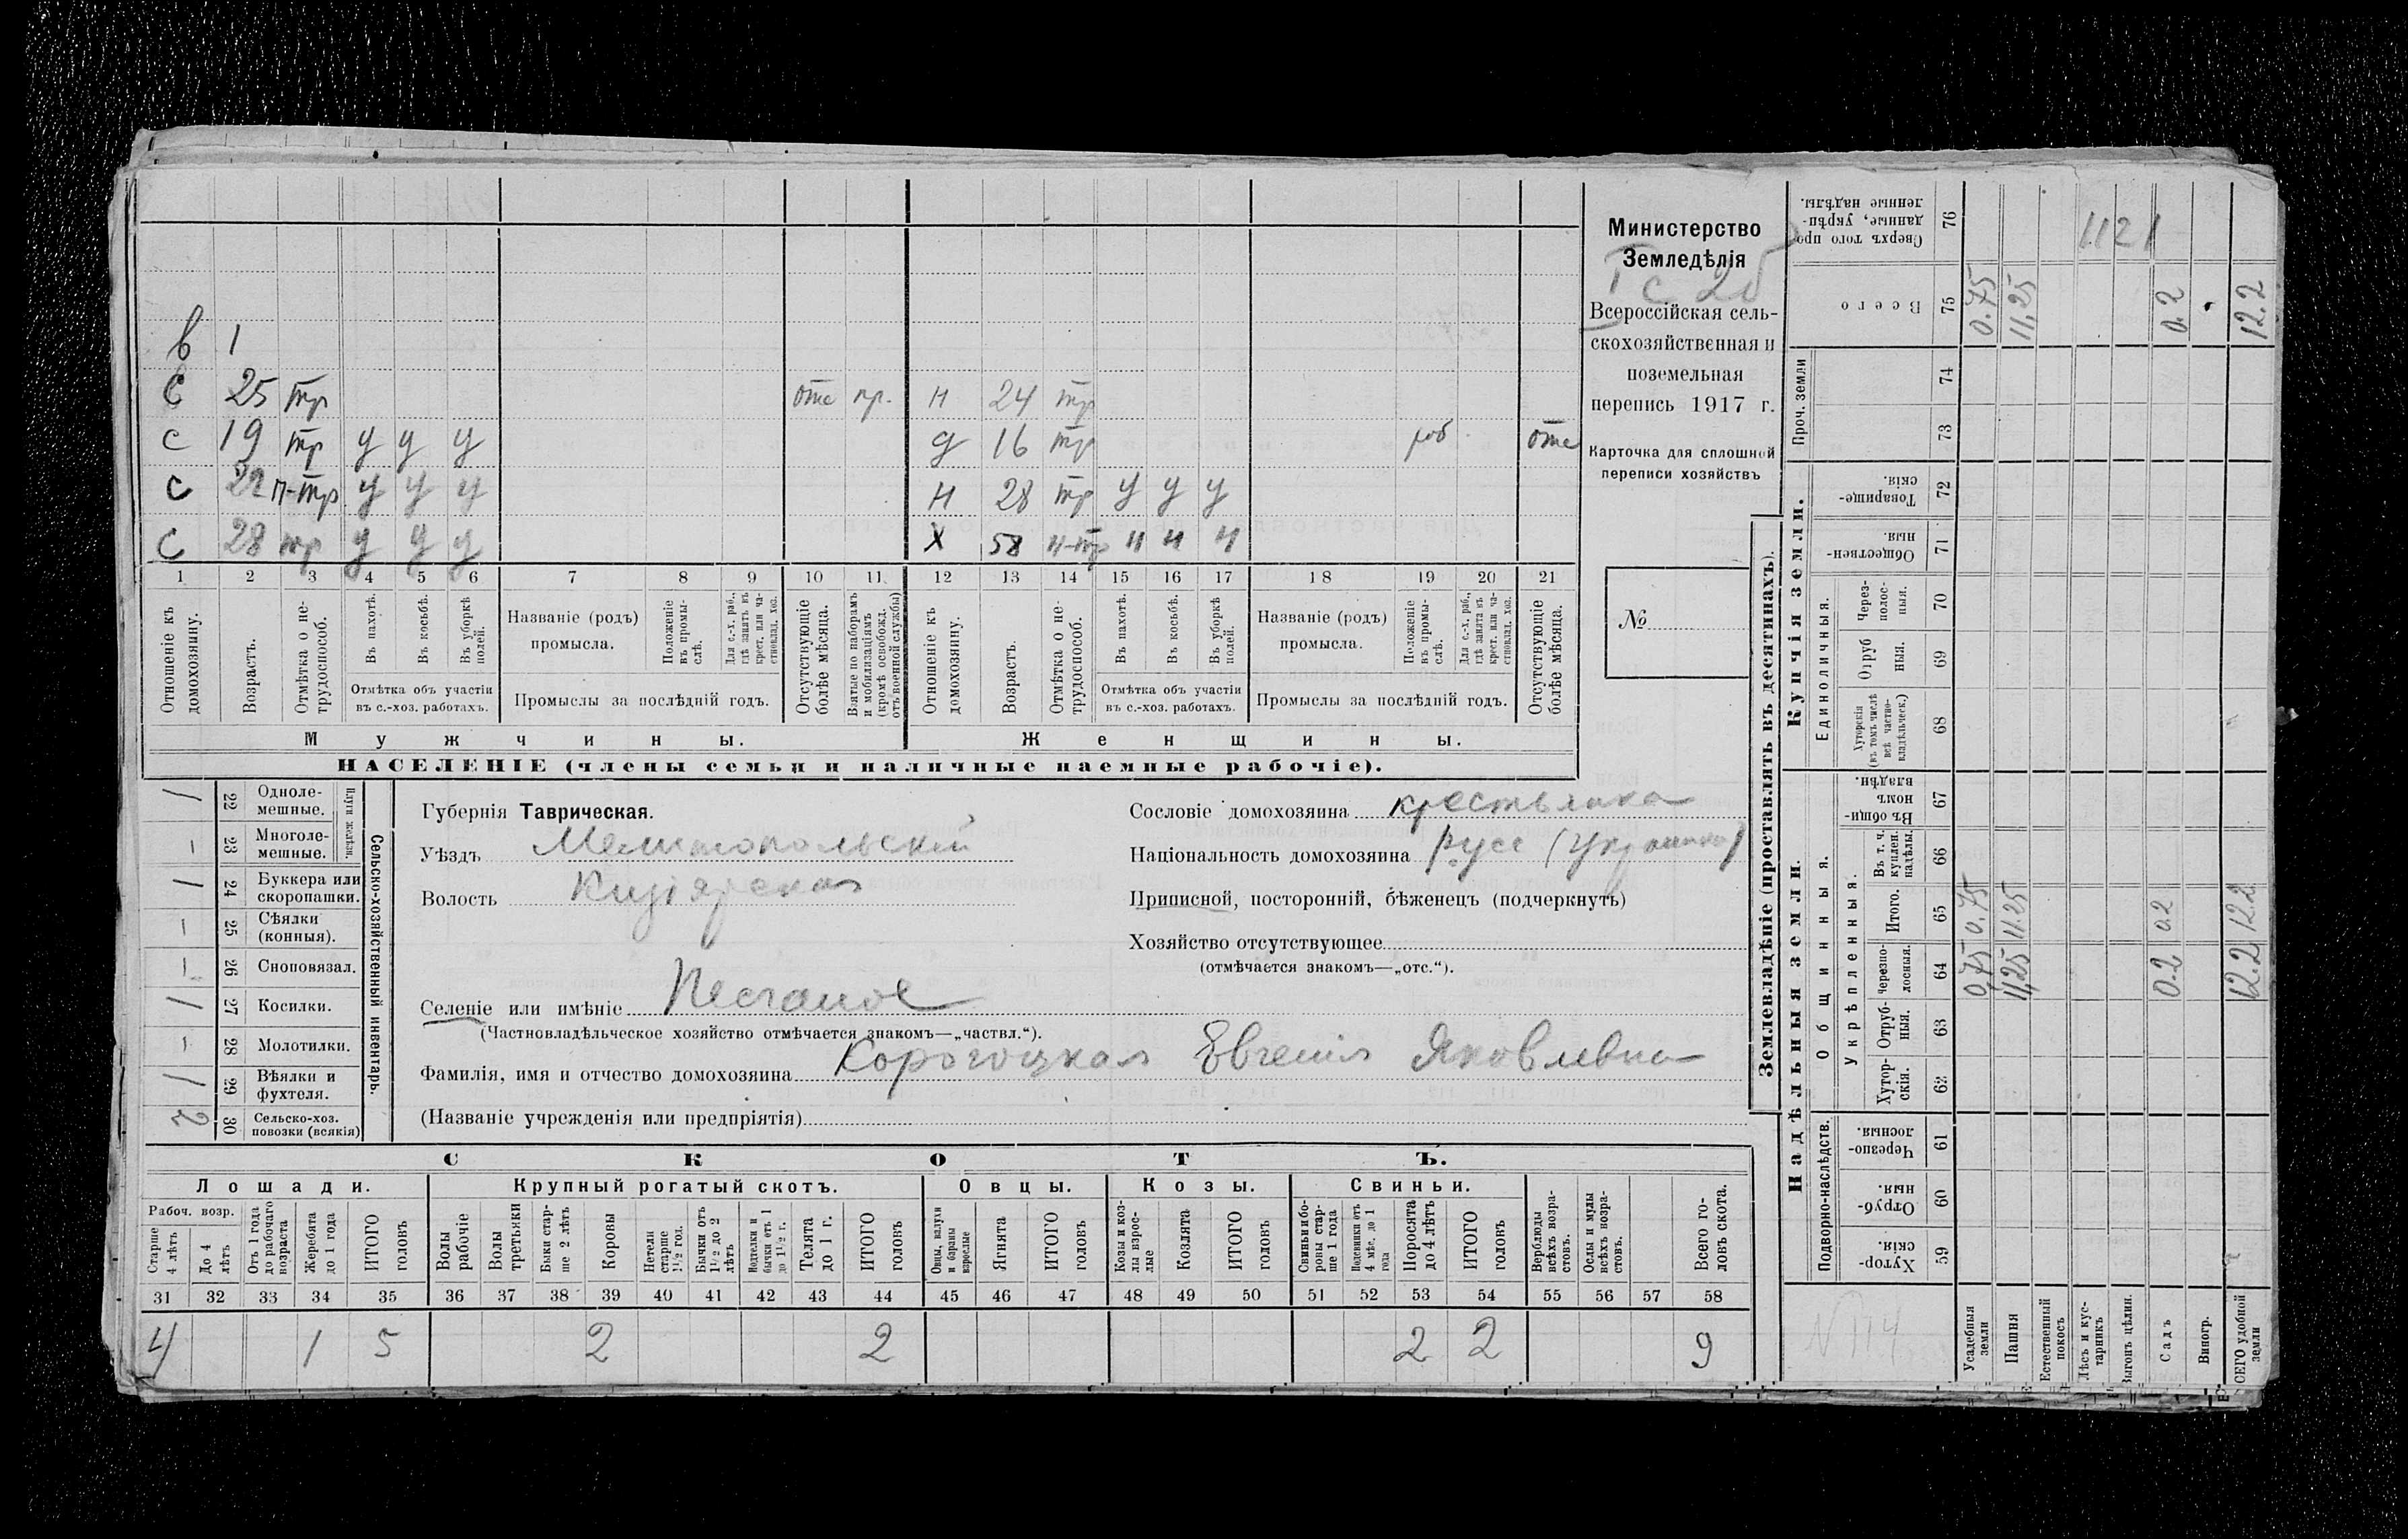 в 1
с 25 тр отс пр. н 24 тр
с 19 тр у у у д 16 тр раб. отс
с 22 п-тр у у у н 28 тр у у у
с 28 тр у у у Х 58 н-тр н н н
1 2 3 4 5 6 7 8 9 10 11 12 13 14 15 16 17 18 19 20 21
Отношеніе къ домохозяину.
Возрастъ.
Отмѣтка о нетрудоспособ.
Въ пахотѣ.
Въ косьбѣ.
Въ уборкѣ полей.
Отмѣтка объ участіи
въ с.-хоз. работахъ.
Названіе (родъ)
промысла.
Положеніе въ промыслѣ.
Для с.-х. раб., гдѣ занятъ въ крест. или частновлад. хоз.
Промыслы за послѣдній годъ.
Отсутствующіе болѣе мѣсяца.
Взятые по наборамъ и мобилизаціямъ (кромѣ освобожд. отъ военной службы)
Отношеніе къ домохозяину.
Возрастъ.
Отмѣтка о нетрудоспособ.
Въ пахотѣ.
Въ косьбѣ.
Въ уборкѣ полей.
Отмѣтка объ участіи
въ с.-хоз. работахъ.
Названіе (родъ)
промысла.
Положеніе въ промыслѣ.
Для с.-х. раб., гдѣ занята въ крест. или частновлад. хоз.
Промыслы за послѣдній годъ.
Отсутствующіе болѣе мѣсяца.
Мужчины.
Женщины.
НАСЕЛЕНІЕ (члены семьи и наличные наемные рабочіе).
Министерство
Земледѣлія
с 25
Всероссійская сель-
скохозяйственная и
поземельная
перепись 1917 г.
Карточка для сплошной
переписи хозяйствъ
№
1 22 Одноле-
мешные.
– 23 Многоле-
мешные.
Плуги желѣзн.
1 24 Буккера или
скоропашки.
– 25 Сѣялки
(конныя).
– 26 Сноповязал.
1 27 Косилки.
– 28 Молотилки.
1 29 Вѣялки и
фухтеля.
2 30 Сельско-хоз.
повозки (всякія)
Сельско-хозяйственный инвентарь.
Губернія Таврическая.
Уѣздъ Мелитопольскій
Волость Кизіярская
Селеніе или имѣніе Песчаное
(Частновладѣльческое хозяйство отмѣчается знакомъ—„частвл.“).
Фамилія, имя и отчество домохозяина Корогоцкая Евгенія Яковлевна
(Названіе учрежденія или предпріятія)
Сословіе домохозяина крестьянка
Національность домохозяина русс (украинка)
Приписной, посторонній, бѣженецъ (подчеркнуть)
Хозяйство отсутствующее
(отмѣчается знакомъ—„отс.“).
СКОТЪ.
Лошади. Крупный рогатый скотъ. Овцы. Козы. Свиньи.
Рабоч. возр.
Старше 4 лѣтъ
До 4 лѣтъ
Отъ 1 года до рабочаго возраста
Жеребята до 1 года
ИТОГО головъ
Волы рабочіе
Волы третьяки
Быки старше 2 лѣтъ
Коровы
Нетели старше 1½ год.
Бычки отъ 1½ до 2 лѣтъ
Подтелки и бычки отъ 1 до 1½ г.
Телята до 1 г.
ИТОГО головъ
Овцы, валухи и бараны взрослые
Ягнята
ИТОГО головъ
Козы и козлы взрослые
Козлята
ИТОГО головъ
Свиньи и боровы старше 1 года
Подсвинки отъ 4 мѣс. до 1 года
Поросята до 4 лѣтъ
ИТОГО головъ
Верблюды всѣхъ возрастовъ.
Ослы и мулы всѣхъ возрастовъ.
Всего головъ скота.
31 32 33 34 35 36 37 38 39 40 41 42 43 44 45 46 47 48 49 50 51 52 53 54 55 56 57 58
4 1 5 2 2 2 2 9
Землевладѣніе (проставлять въ десятинахъ).
Надѣльныя земли.
Купчія земли.
Проч. земли
Подворно-наслѣдств.
Общинныя.
Укрѣпленныя.
Единоличныя.
Хуторскія. 59
Отрубныя. 60
Черезполосныя. 61
Хуторскія. 62
Отрубныя. 63
Черезполосныя. 64
Итого. 65
Въ т. ч. куплен. надѣлы. 66
Въ общинномъ владѣн. 67
Хуторскія (въ томъ числѣ всѣ частновладѣльческ.) 68
Отрубныя. 69
Черезполосныя. 70
Общественныя. 71
Товарищескія. 72
73
74
Всего 75
Сверхъ того проданные, укрѣпленные надѣлы. 76
№ 114
Усадебныя земли 0,75 0.75 0.75
Пашня 11,25 11.25 11,25
Естественный покосъ
Лѣсъ и кустарникъ
Выгонъ цѣлин.
Садъ 0.2 0.2 0.2
Виногр.
ВСЕГО удобной земли 12.2 12.2 12.2
1121